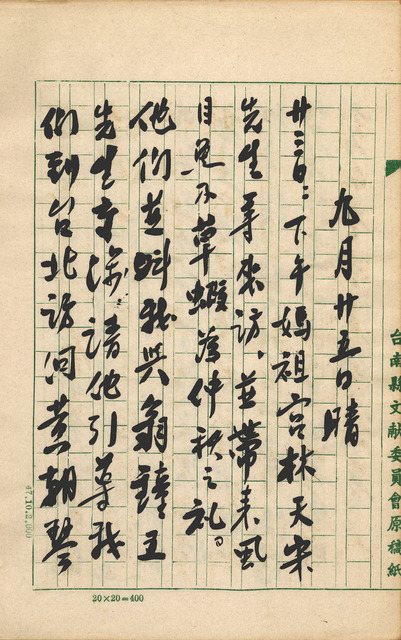 九月廿五日晴
廿三日:下午媽祖宮林天宋
先生等來訪、並帶來風
目魚及草蝦為仲秋之禮。
他們並與我與翁鐘王
先生交涉請他引導我
們到台北訪問黃朝琴
台南縣文献委員會原稿紙
47.10.2,000
20×20=400